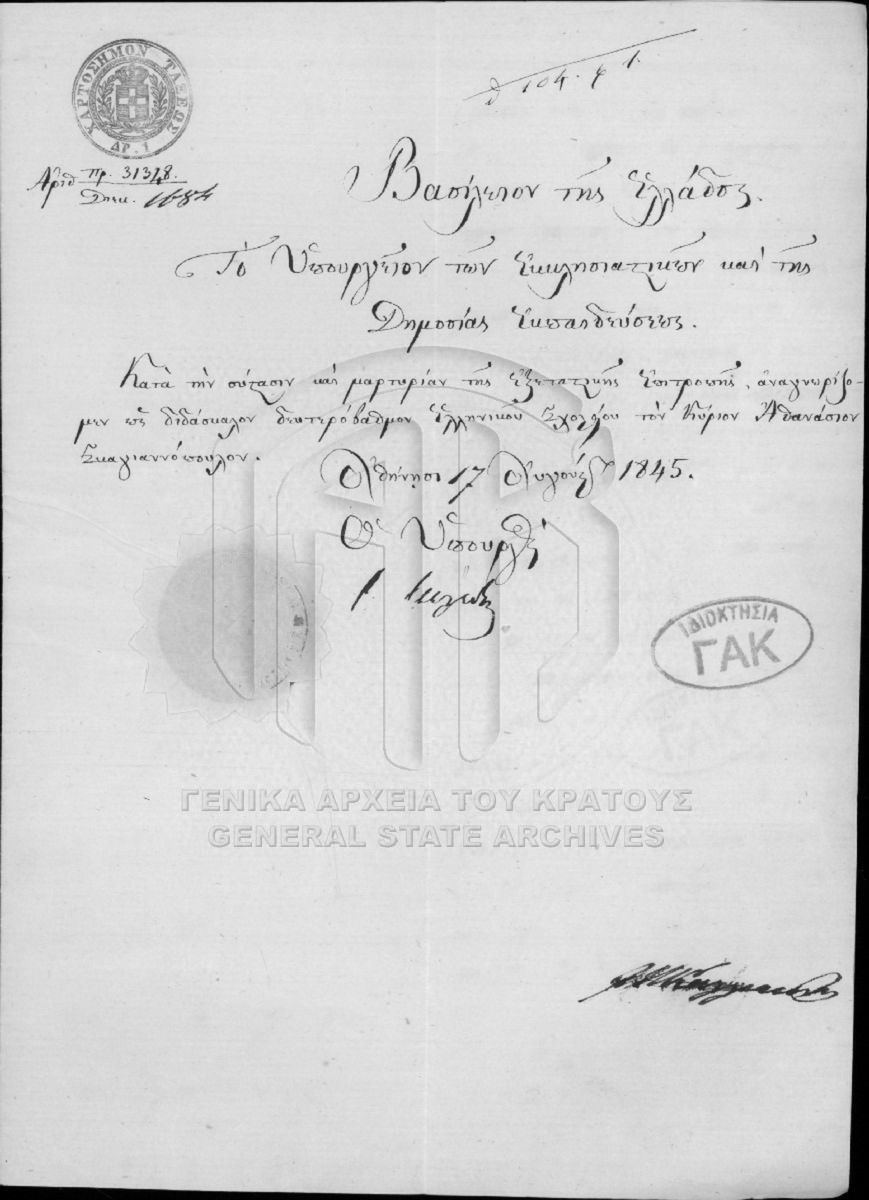 ΧΑΡΤΟΣΗΜΟΝ ΤΑΞΕΩΣ
ΔΡ. 1
104.
Ἀριθ. πρ. 31348.
Διεκ.
Βασίλειον τῆς Ἑλλάδος.
Τὸ Ὑπουργεῖον τῶν Ἐκκλησιαστικῶν καὶ τῆς
Δημοσίας Ἐκπαιδεύσεως.
Κατὰ τὴν σύστασιν καὶ μαρτυρίαν τῆς Ἐξεταστικῆς Ἐπιτροπῆς, ἀναγνωρίζο-
μεν ὡς διδάσκαλον δευτεροβάθμου Ἑλληνικοῦ Σχολείου τὸν Κύριον Ἀθανάσιον
Σκαγιαννόπουλον.
Ἀθήνησι 17 Αὐγούστου 1845.
Ὁ Ὑπουργὸς
ΙΔΙΟΚΤΗΣΙΑ
ΓΑΚ
ΓΕΝΙΚΑ ΑΡΧΕΙΑ ΤΟΥ ΚΡΑΤΟΥΣ
GENERAL STATE ARCHIVES